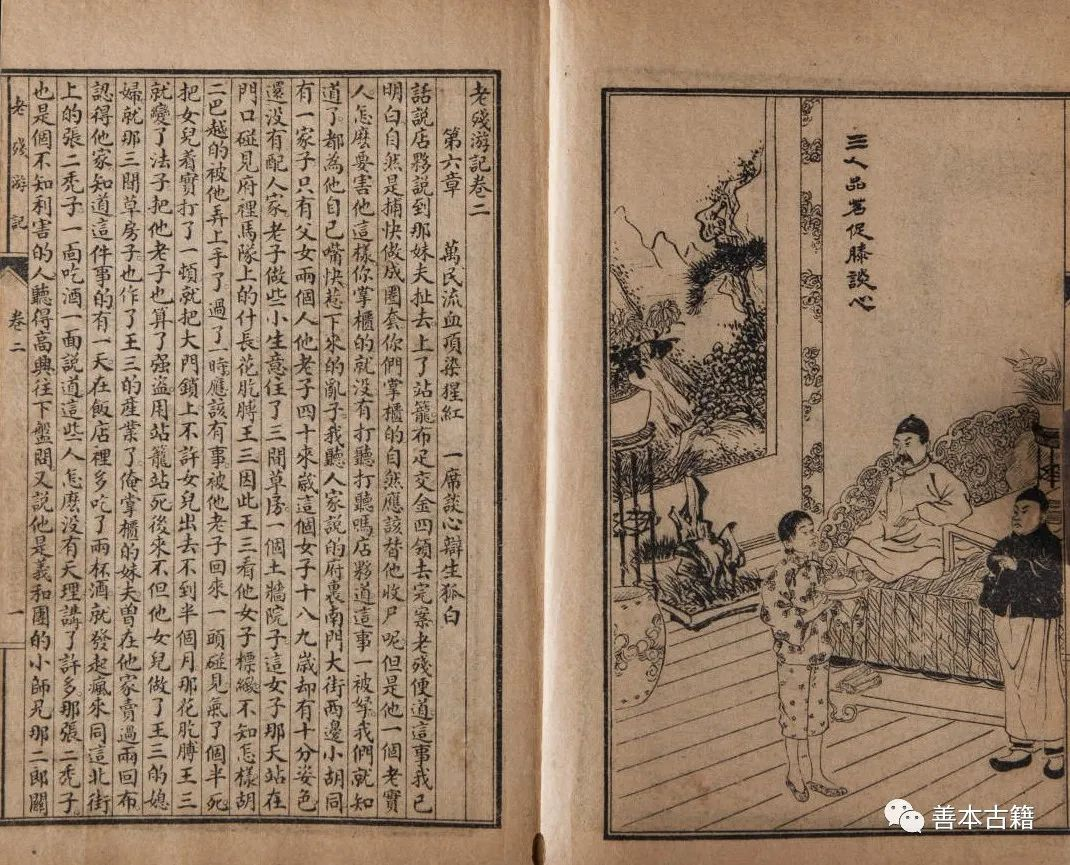 三人品茗促膝談心
老殘游記卷二
第六章 萬民流血頂染猩紅 一席談心辯生狐白
話說店夥說到那妹夫扯去上了站籠布足交金四領去完案老殘便道這事我已
明白自然是捕快做成圈套你們掌櫃的自然應該替他收尸呢但是他一個老實
人怎麽要害他這樣你掌櫃的就没有打聽打聽嗎店夥道這事一被我們就知
道了都為他自己嘴快惹下來的亂子我聽人家說的府裏南門大街西邊小胡同
有一家子只有父女兩個人他老子四十來歲這個女子十八九歲却有十分姿色
還没有配人家老子做些小生意住了三間草房一個土牆院子這女子那天站在
門口碰見府裡馬隊上的什長花肐膊王三因此王三看他女子標緻不知怎樣胡
二巴越的被他弄上手了過了一時應該有事被他老子回來一頭碰見氣了個半死
把女兒着實打了一頓就把大門鎖上不許女兒出去不到半個月那花肐膊王三
就變了法子把他老子也算了强盗用站籠站死後來不但他女兒做了王三的媳
婦就那三間草房子也作了王三的產業了俺掌櫃的妹夫曾在他家賣過兩回布
認得他家知道這件事的有一天在飯店裡多吃了兩杯酒就發起瘋來同這北街
上的張二禿子一面吃酒一面說道這些人怎麽没有天理講了許多那張二禿子
也是個不知利害的人聽得高興往下盤問又說他是義和團的小師兄那二郎關
老殘游記
卷二
一
善本古籍